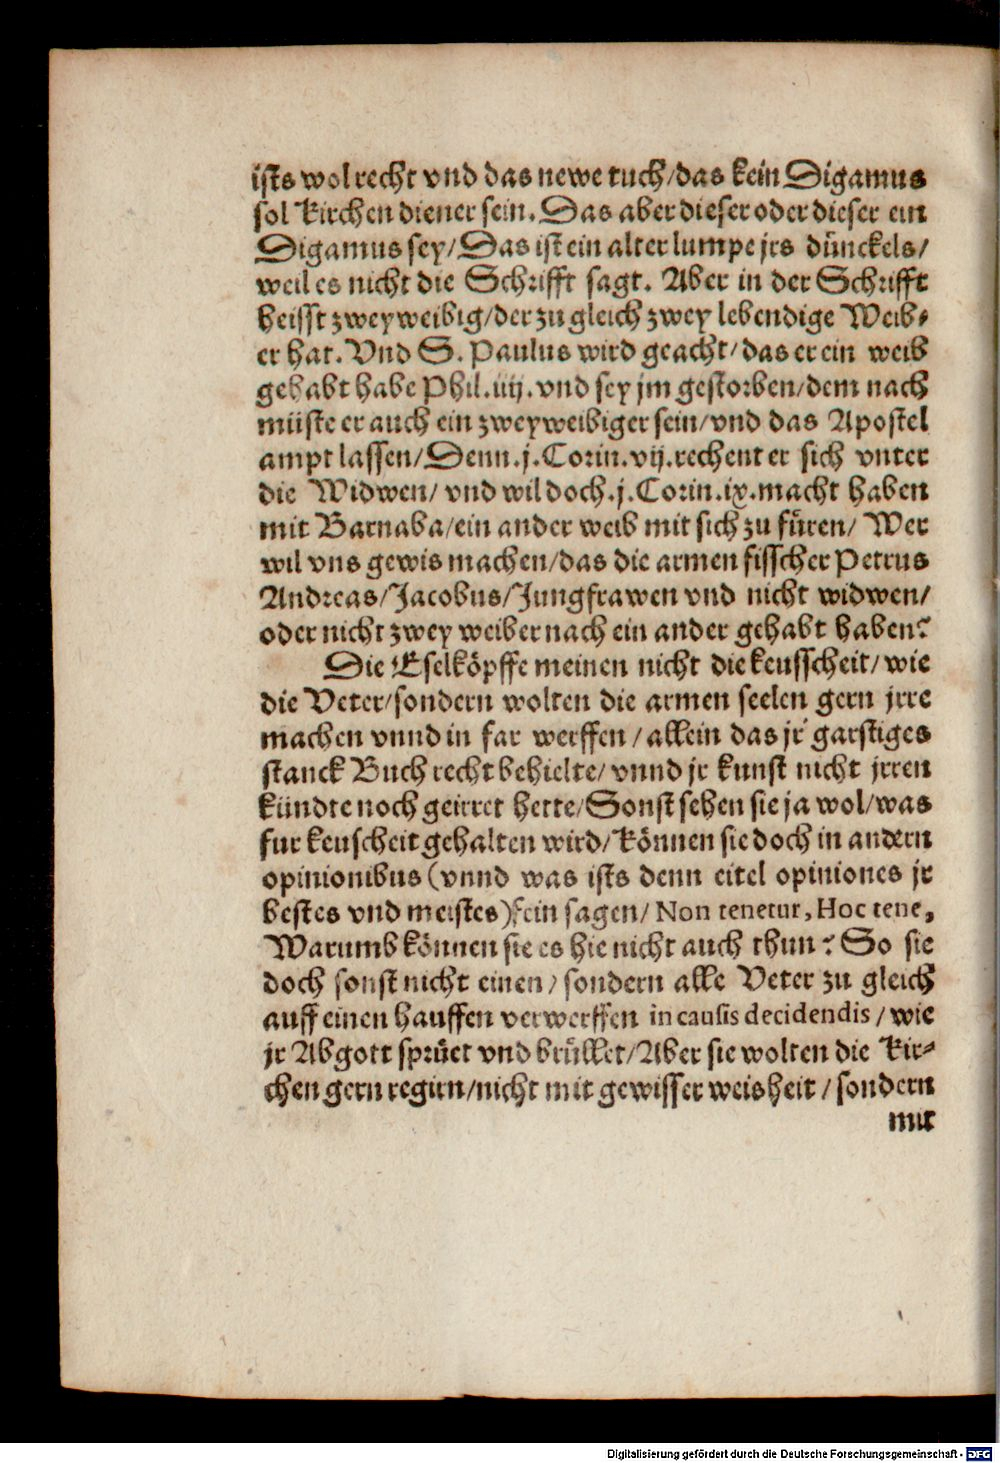 ists wol recht vnd das newe tuch/das kein Digamus
sol Kirchen diener sein. Das aber dieser oder dieser ein
Digamus sey/Das ist ein alter lumpe jrs dünckels/
weil es nicht die Schrifft sagt. Aber in der Schrifft
heisst zweyweibig/der zu gleich zwey lebendige Weib-
er hat. Vnd S. Paulus wird geacht/das er ein weib
gehabt habe Phil.iiij.vnd sey jm gestorben/dem nach
müste er auch ein zweyweibiger sein/vnd das Apostel
ampt lassen/Denn.j.Corin.vij.rechent er sich vnter
die Widwen/vnd wil doch.j.Corin.ix.macht haben
mit Barnaba/ein ander weib mit sich zu füren/Wer
wil vns gewis machen/das die armen fisscher Petrus
Andreas/Jacobus/Jungfrawen vnd nicht widwen/
oder nicht zwey weiber nach ein ander gehabt haben?
Die Eselköpffe meinen nicht die keusscheit/wie
die Veter/sondern wolten die armen seelen gern jrre
machen vnnd in far werffen/allein das jr garstiges
stanck Buch recht behielte/vnnd jr kunst nicht jrren
kündte noch geirret hette/Sonst sehen sie ja wol/was
fur keuscheit gehalten wird/Können sie doch in andern
opinionibus (vnnd was ists denn eitel opiniones jr
bestes vnd meistes) fein sagen/Non tenetur, Hoc tene,
Warumb können sie es hie nicht auch thun? So sie
doch sonst nicht einen/sondern alle Veter zu gleich
auff einen hauffen verwerffen in causis decidendis/wie
jr Abgott sprüet vnd brüllet/Aber sie wolten die Kir-
chen gern regirn/nicht mit gewisser weisheit/sondern
mit
Digitalisierung gefördert durch die Deutsche Forschungsgemeinschaft - DFG